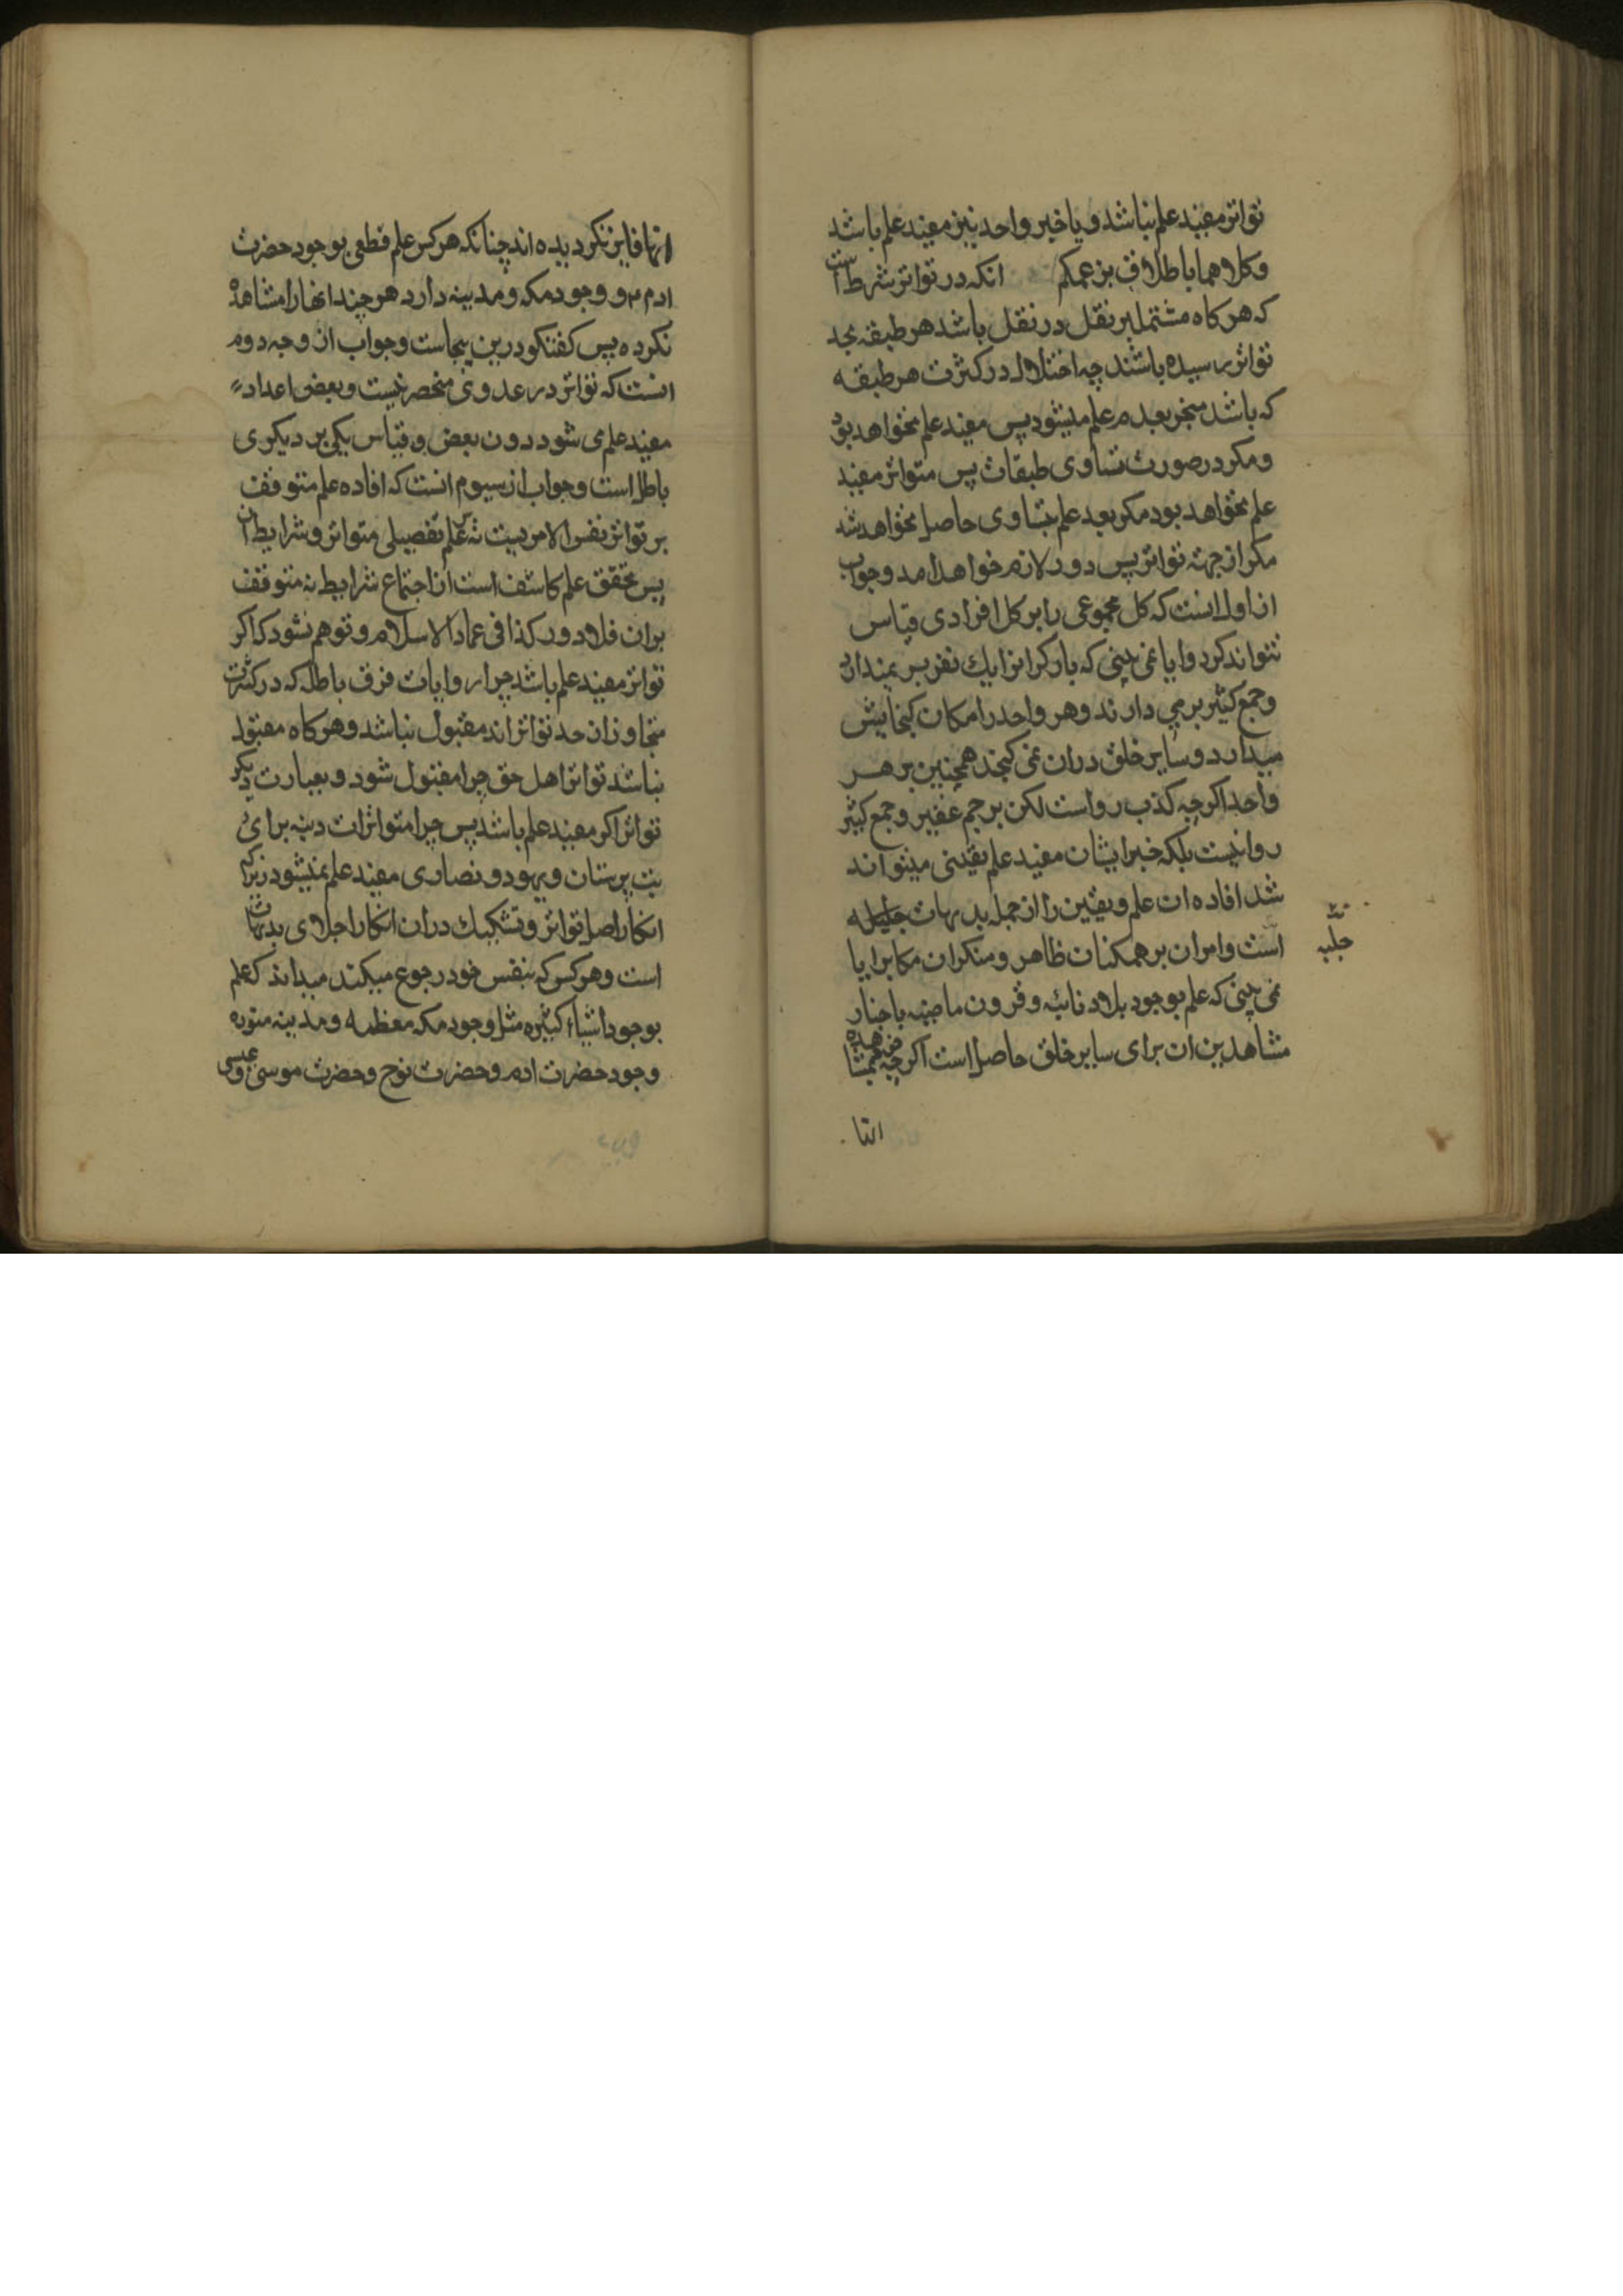 تواتر مفید علم نباشد و یا خبر واحد نیز مفید علم باشد
وکلاهما باطلان بزعمکم انکه در تواتر شرط است
که هر کاه مشتمل بر نقل در نقل باشد هر طبقه بحد
تواتر رسیده باشند چه اختلال در کثرت هر طبقه
که باشد منجر بعدم علم میشود پس مفید علم نخواهد بود
ومکر در صورت تساوی طبقات پس متواتر مفید
علم نخواهد بود مکر بعد علم بتساوی حاصل نخواهد شد
مکر از جهته تواتر پس دور لازم خواهد امد وجواب
از اول انست که کل مجموعی را بر کل افرادی قیاس
نتواند کرد وایا نمی بینی که بار کرانرا یك نفر بر نمیدارد
وجمع کثیر بر می دارند وهر واحد را مکان کنجایش
میدارد وسایر خلق دران نمی کنجد همچنین بر هر
واحد اکرچه کذب رواست لکن بر جم غفیر وجمع کثیر
روانیست بلکه خبر ایشان مفید علم یقینی میتواند
شد افاده ان علم ویقین را از جمله بدیهات جلیله
است وامران بر همکنان ظاهر ومنکران مکابر ایا
جلیه
نمی بینی که علم بوجود بلاد نائیه وقرون ماضیه باخبار
مشاهدین ان برای سایر خلق حاصل است اکرچه بمشاهده
انها فایز نکردیده اند چنانکه هر کس علم قطعی بوجود حضرت
ادم ع و وجود مکه ومدینه دارد هر چند انهارا مشاهده
نکرده پس کفتکو درین بیجاست وجواب از وجه دوم
انست که تواتر در عددی منحصر نیست وبعض اعداد
مفید علم می شود دون بعض وقیاس یکی بر دیکری
باطل است وجواب از سیوم انست که افاده علم متوقف
بر تواتر نفس الامریست نه علم تفصیلی متواتر وشرایط ان
پس تحقق علم کاشف است از اجتماع شرایط نه متوقف
بران فلا دور کذا فی عماد الاسلام وتوهم نشود که اکر
تواتر مفید علم باشد چرا روایات فرق باطله که در کثرت
متجاوز ان حد تواتر اند مقبول نباشد وهر کاه مقبول
نباشد تواتر اهل حق چرا مقبول شود وبعبارت دیکر
تواتر اکر مفید علم باشد پس چرا متواترات دینیه برای
بت پرستان ویهود ونصاری مفید علم نمیشود زیراکه
انکار اصل تواتر وتشکیك دران انکار اجلای بدیهات
است وهر کس که بنفس خود رجوع میکند میداند که علم
بوجود اشیاء کثیره مثل وجود مکه معظمه ومدینه منوره
وجود حضرت ادم وحضرت نوح وحضرت موسی وعیسی